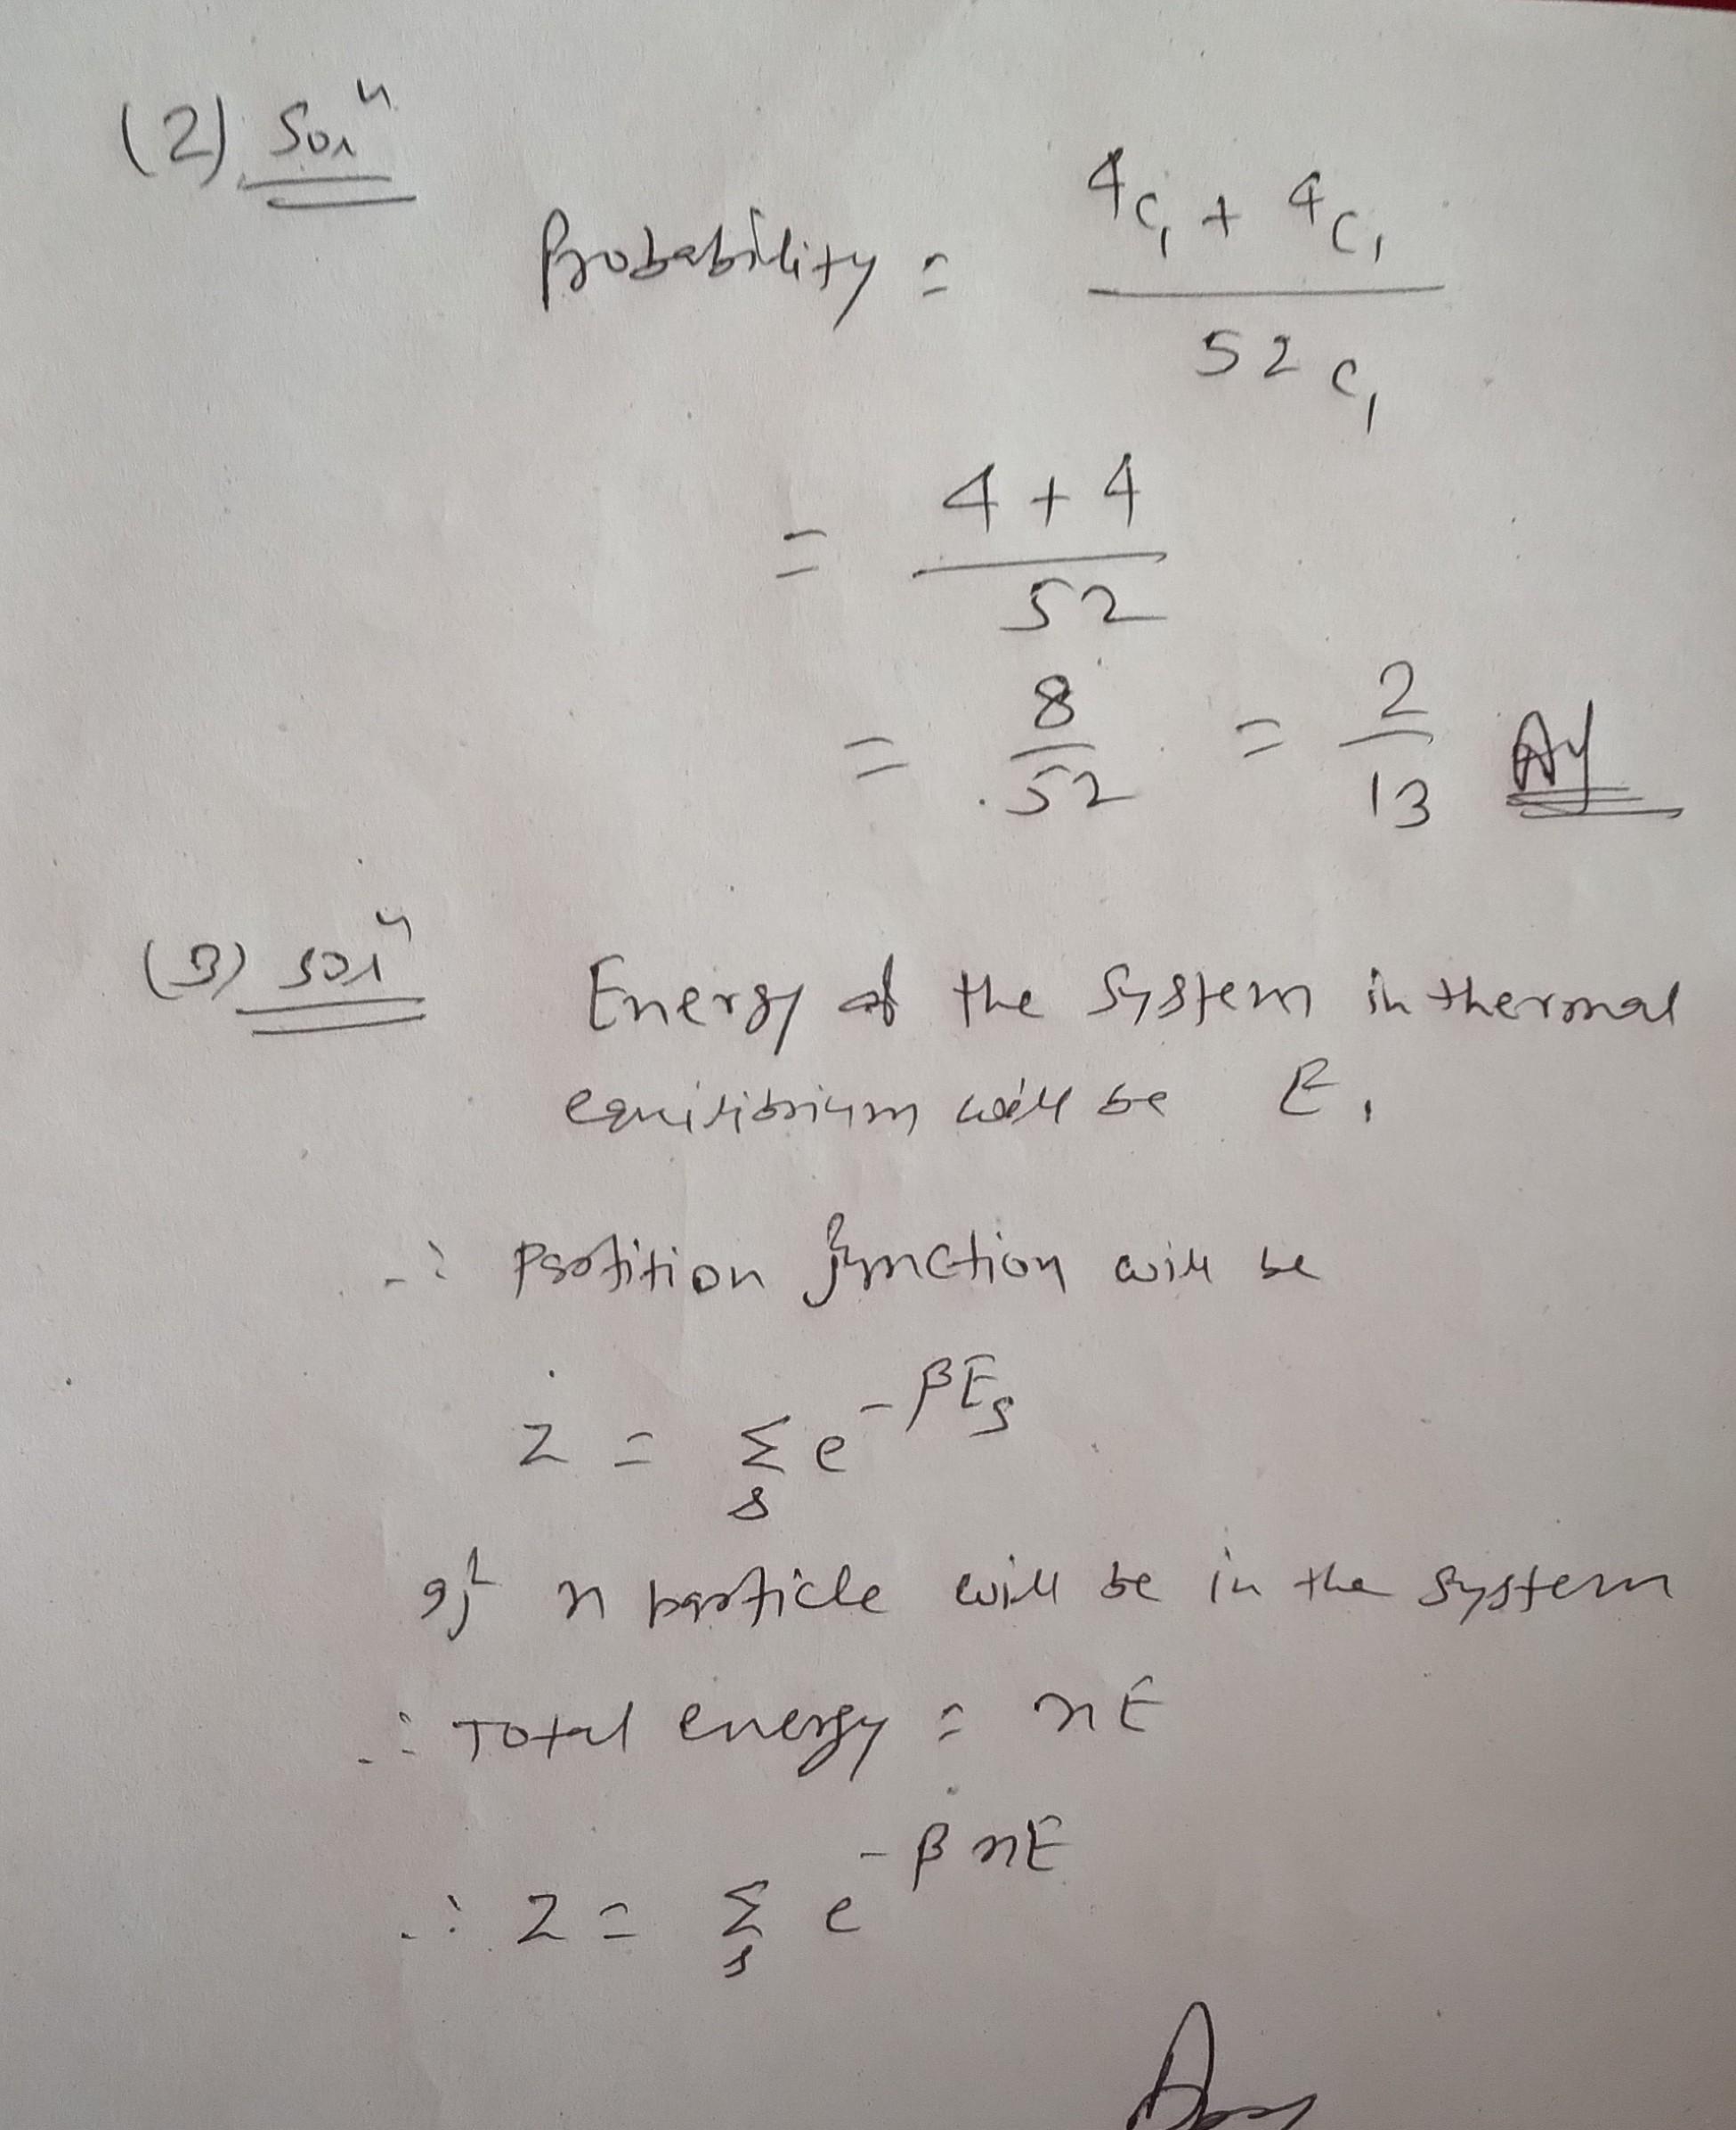 (2) Solⁿ
Probability = (4C₁ + 4C₁) / 52C₁
= (4 + 4) / 52
= 8/52 = 2/13 Ans
(3) Solⁿ Energy of the system in thermal
equilibrium will be E,
∴ Partition function will be
Z = Σₛ e^(-βEₛ)
If n particle will be in the system
∴ Total energy = nE
∴ Z = Σₛ e^(-βnE)
Ans